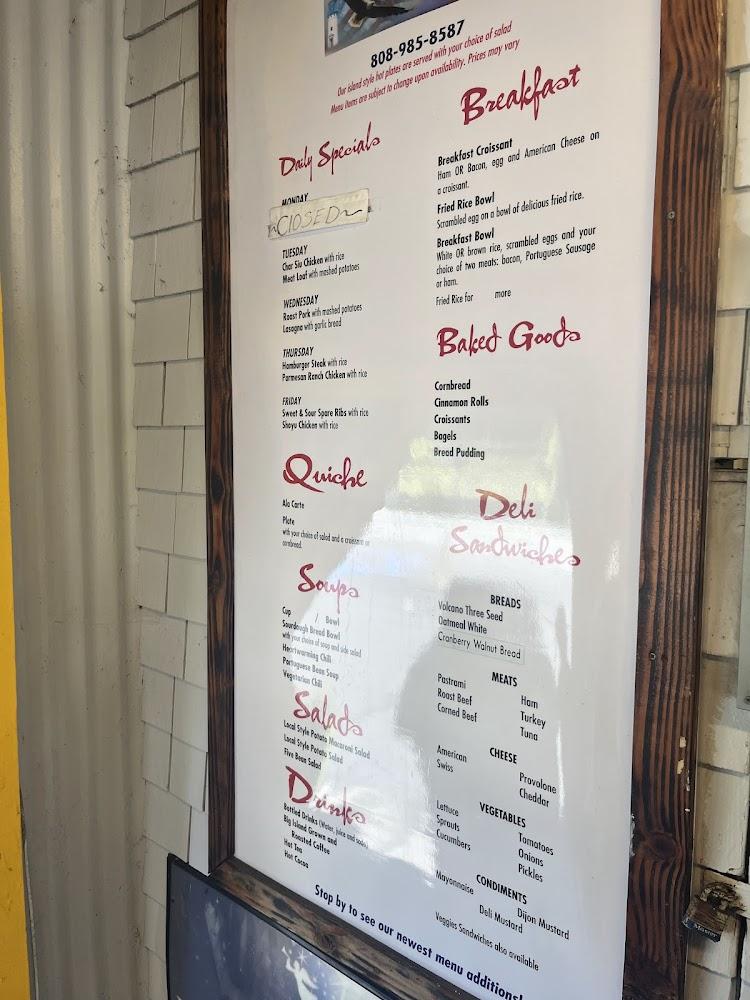 808-985-8587
Our island style hot plates are served with your choice of salad
Menu items are subject to change upon availability. Prices may vary
Daily Specials
MONDAY
~CLOSED~
TUESDAY
Char Siu Chicken with rice
Meat Loaf with mashed potatoes
WEDNESDAY
Roast Pork with mashed potatoes
Lasagna with garlic bread
THURSDAY
Hamburger Steak with rice
Parmesan Ranch Chicken with rice
FRIDAY
Sweet & Sour Spare Ribs with rice
Shoyu Chicken with rice
Quiche
Ala Carte
Plate
with your choice of salad and a croissant or
cornbread.
Soups
Cup / Bowl
Sourdough Bread Bowl
with your choice of soup and side salad
Heartwarming Chili
Portuguese Bean Soup
Vegetarian Chili
Salads
Local Style Potato Macaroni Salad
Local Style Potato Salad
Five Bean Salad
Drinks
Bottled Drinks (Water, juice and soda)
Big Island Grown and
Roasted Coffee
Hot Tea
Hot Cocoa
Breakfast
Breakfast Croissant
Ham OR Bacon, egg and American Cheese on
a croissant.
Fried Rice Bowl
Scrambled egg on a bowl of delicious fried rice.
Breakfast Bowl
White OR brown rice, scrambled eggs and your
choice of two meats: bacon, Portuguese Sausage
or ham.
Fried Rice for more
Baked Goods
Cornbread
Cinnamon Rolls
Croissants
Bagels
Bread Pudding
Deli
Sandwiches
BREADS
Volcano Three Seed
Oatmeal White
Cranberry Walnut Bread
MEATS
Pastrami Ham
Roast Beef Turkey
Corned Beef Tuna
CHEESE
American Provolone
Swiss Cheddar
VEGETABLES
Lettuce Tomatoes
Sprouts Onions
Cucumbers Pickles
CONDIMENTS
Mayonnaise Dijon Mustard
Deli Mustard
Veggies Sandwiches also available
Stop by to see our newest menu additions!
Master